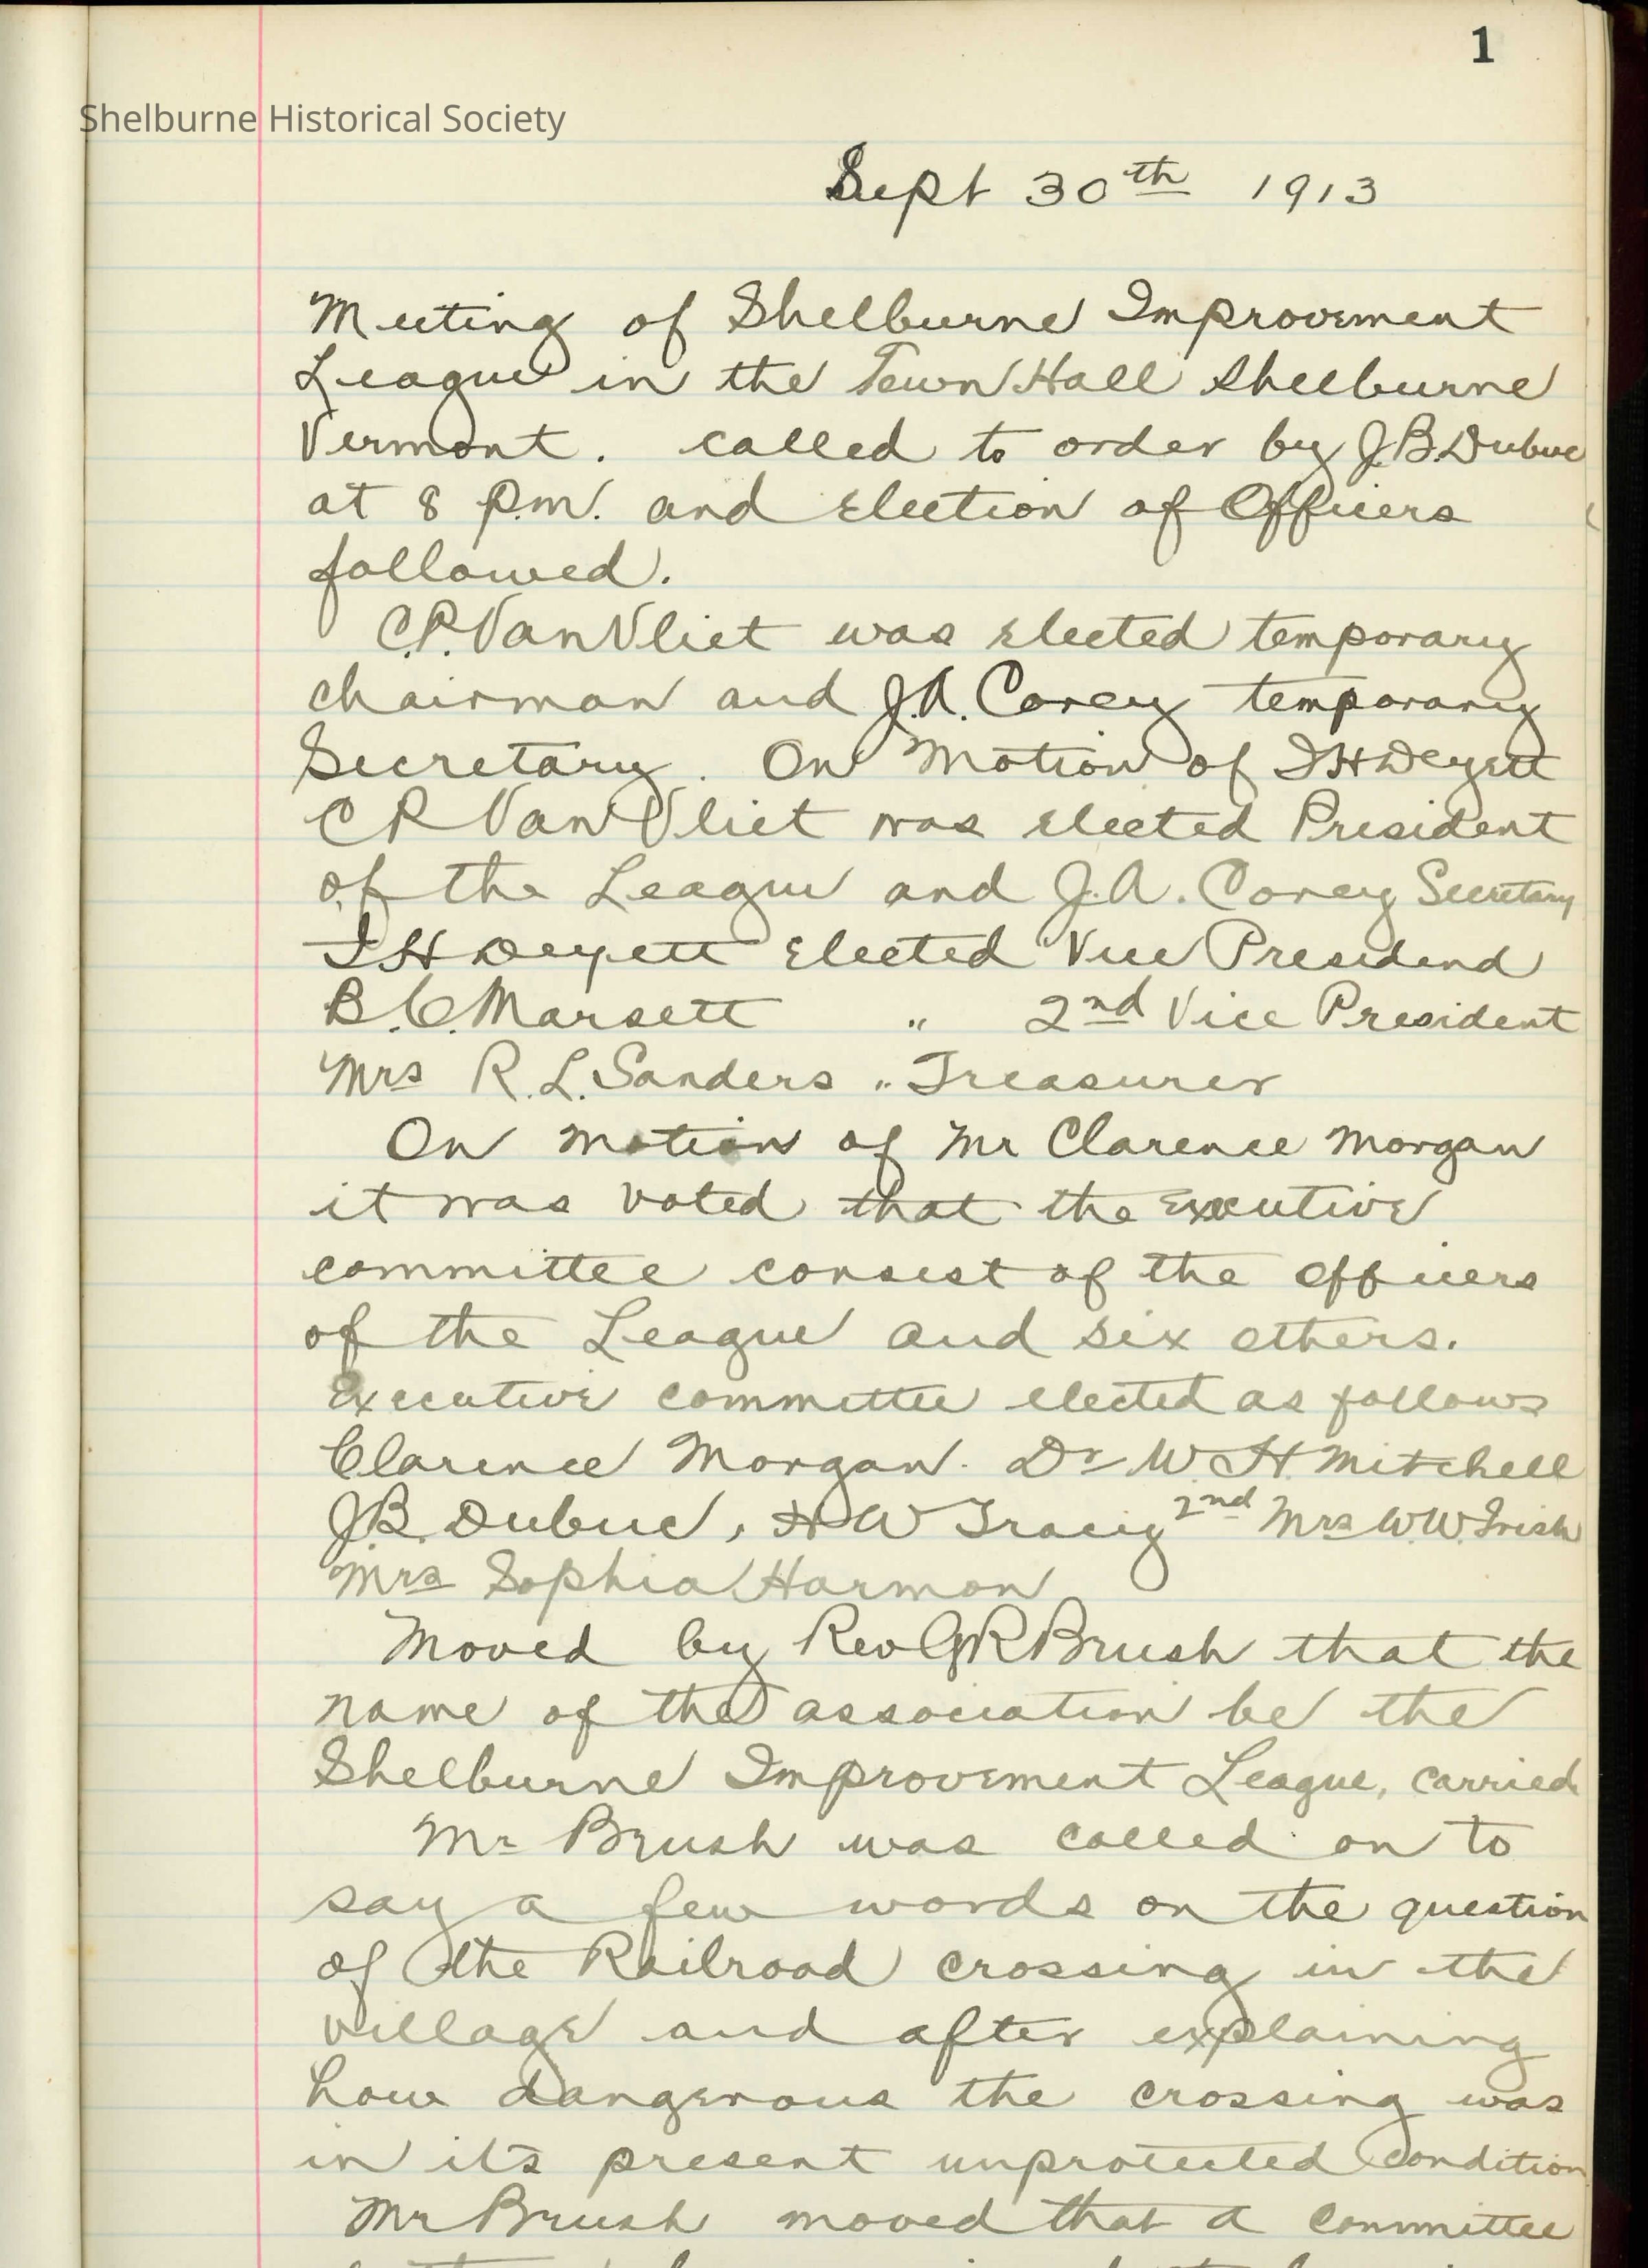 1
Shelburne Historical Society
Sept 30th 1913
Meeting of Shelburne Improvement
League in the Town Hall Shelburne
Vermont. called to order by J.B. Dubuc
at 8 P.m. and Election of Officers
followed.
C.P. Van Vliet was elected temporary
chairman and J.A. Corey temporary
Secretary. On Motion of I H Deyett
C P Van Vliet was elected President
of the League and J.A. Corey Secretary
I H Deyett Elected Vice Presidend
B.C. Marsett " 2nd Vice President
Mrs R.L. Sanders " Treasurer
On motion of Mr Clarence Morgan
it was voted that the Executive
committee consist of the officers
of the League and six others.
Executive committee elected as follows
Clarence Morgan. Dr W.H. Mitchell
J.B. Dubuc, H W Tracy 2nd Mrs W.W. Irish
Mrs Sophia Harmon
Moved by Rev G R Brush that the
name of the association be the
Shelburne Improvement League, carried
Mr Brush was called on to
say a few words on the question
of the Railroad crossing in the
village and after explaining
how dangerous the crossing was
in it's present unprotected condition
Mr Brush moved that a committee